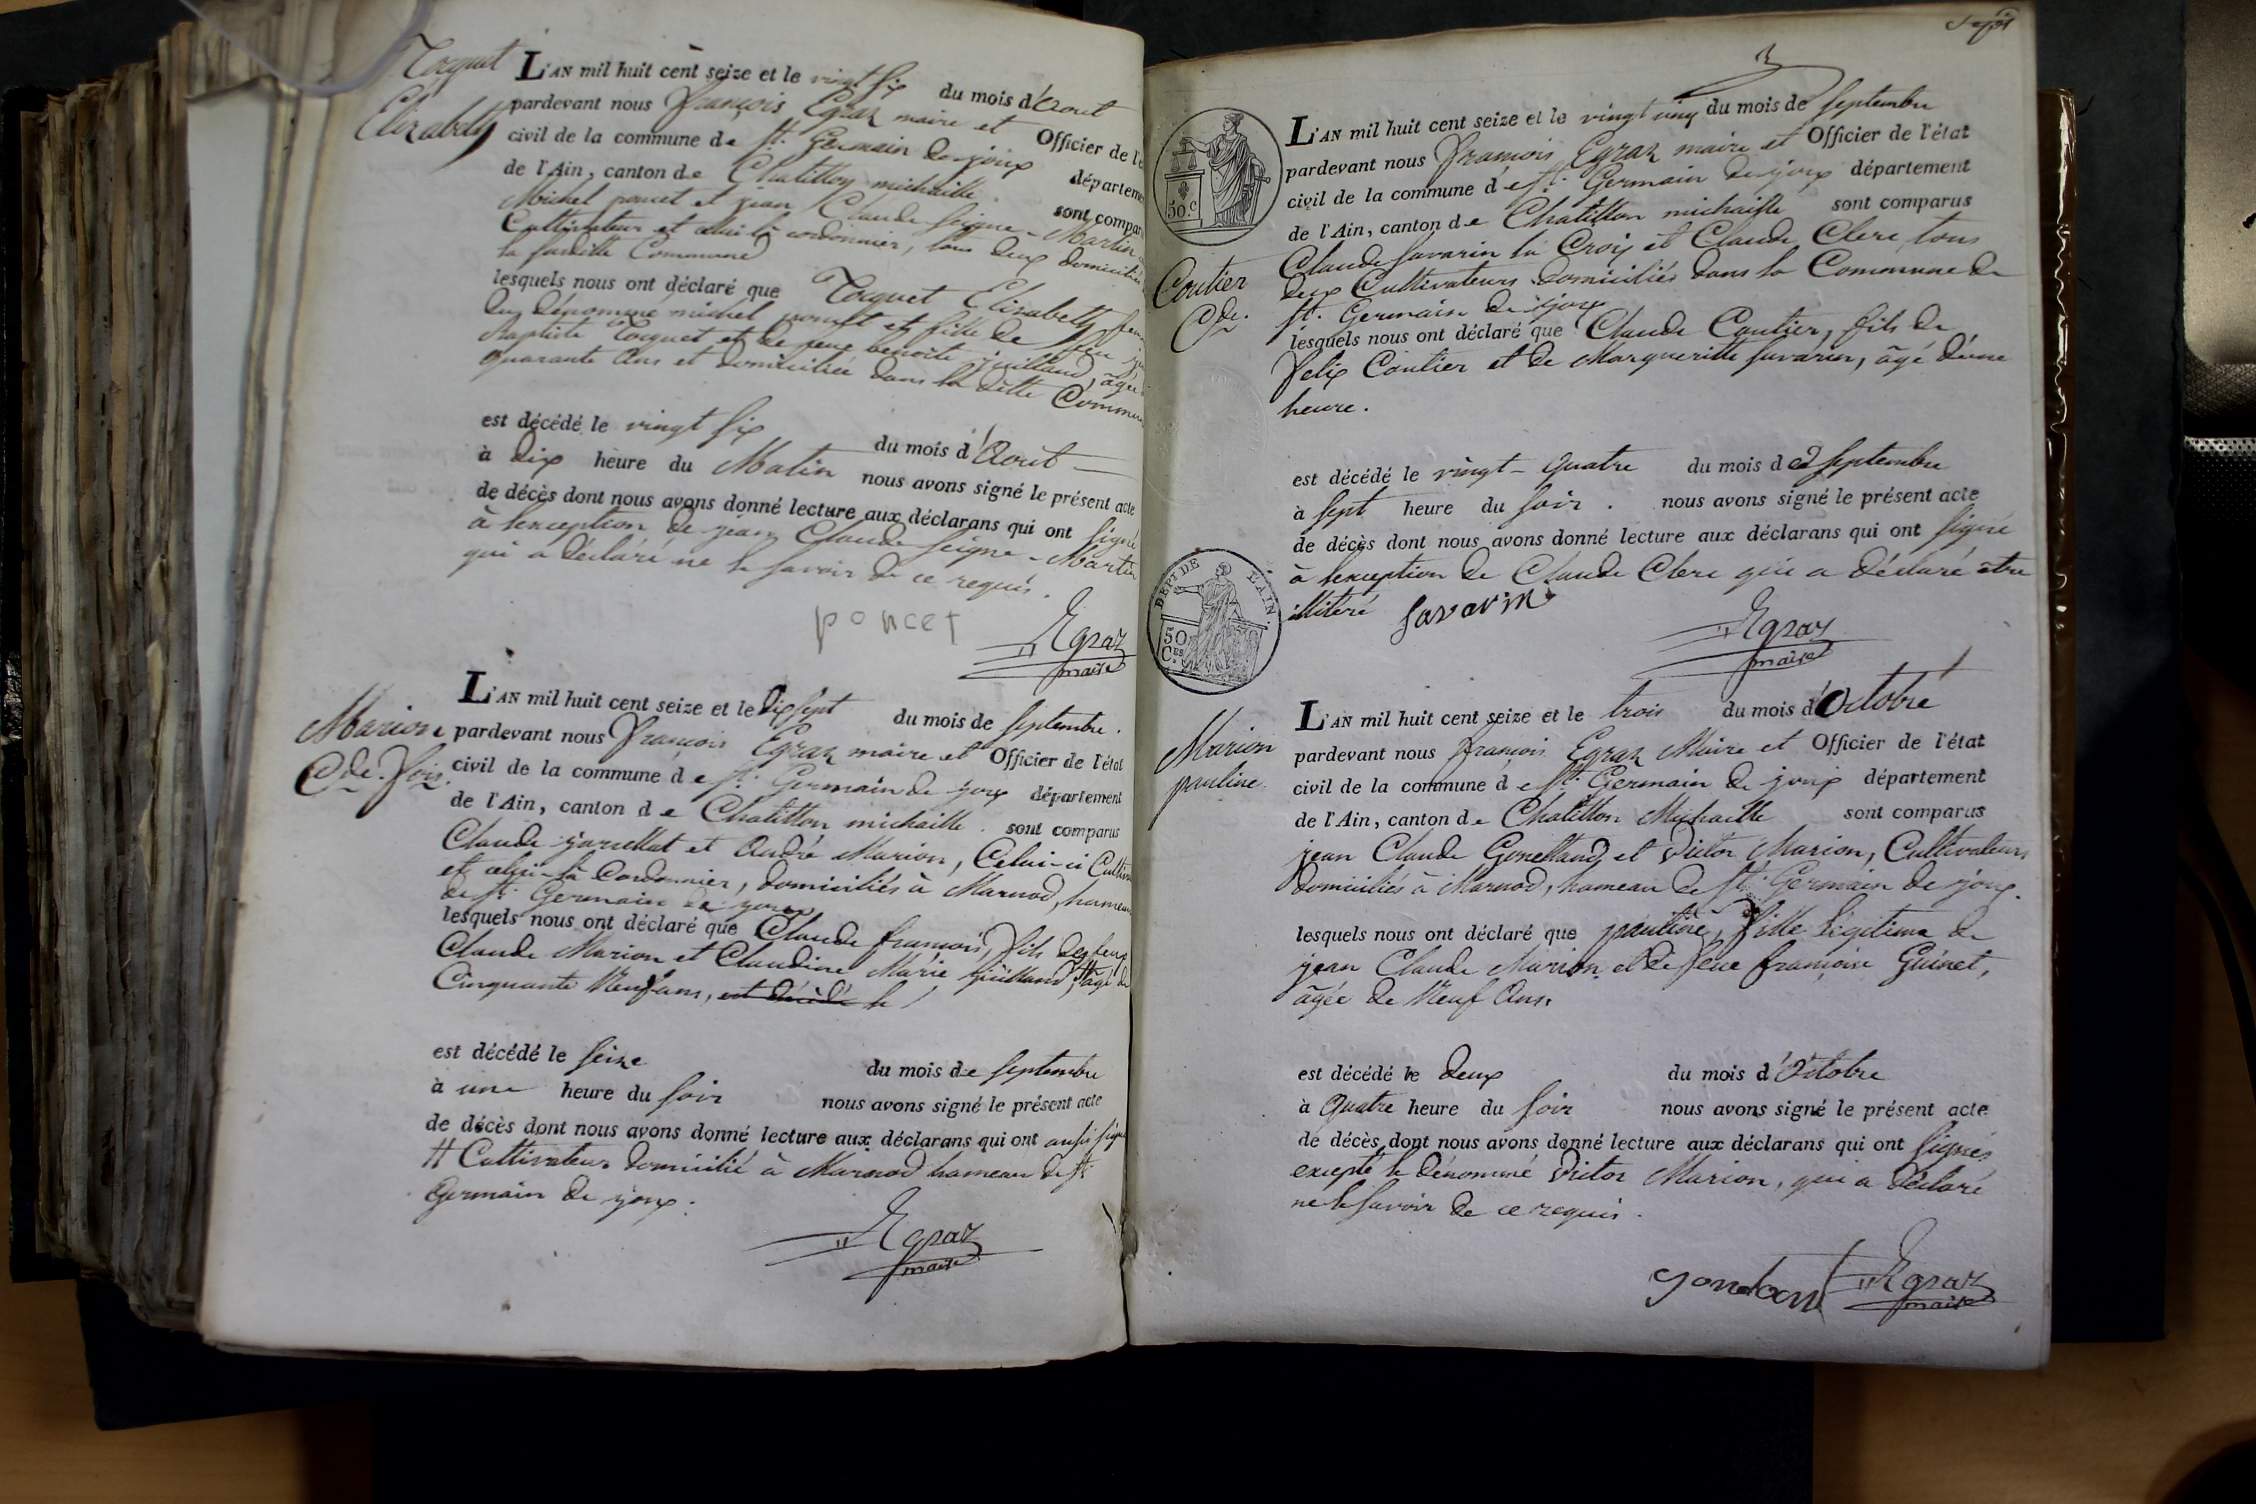 Tocquet
Elizabeth
L'AN mil huit cent seize et le vingt six du mois d'Aout
pardevant nous François Egraz maire et Officier de l'é
civil de la commune de St. Germain de joux départeme
de l'Ain, canton de Chatillon michaille. sont compar
Michel poncet et jean Claude Seigne-Martin
Cultivateur et celui-là cordonnier, tous deux domiciliés
la susditte Commune
lesquels nous ont déclaré que Tocquet Elizabeth, fem
du dénommé michel poncet et fille de feu
Baptiste Tocquet et de feue benoite juilland, âgée
quarante Ans et domiciliée dans la ditte Commun
est décédé le vingt six du mois d'Aout
à dix heure du Matin nous avons signé le présent acte
de décès dont nous avons donné lecture aux déclarans qui ont signé
à l'exception de jean Claude Seigne-Martin
qui a déclaré ne le savoir de ce requis.
poncet
Egraz
maire
Marion
Cde. fois.
L'AN mil huit cent seize et le dix sept du mois de septembre.
pardevant nous François Egraz maire et Officier de l'état
civil de la commune de St. Germain de joux département
de l'Ain, canton de Chatillon michaille. sont comparus
Claude et André Marion, Celui-ci Cultiv
et celui-là Cordonnier, domiciliés à Marnod, hameau
de St. Germain de joux
lesquels nous ont déclaré que Claude françois, fils de feux
Claude Marion et Claudine Marie juilland, # âgé de
Cinquante Neuf ans, est décédé le
est décédé le seize du mois de septembre
à une heure du soir nous avons signé le présent acte
de décès dont nous avons donné lecture aux déclarans qui ont aussi signé
# Cultivateur domicilié à Marnod hameau de St.
Germain de joux.
Egraz
maire
Sept
50.c
Coutier
Cde.
L'AN mil huit cent seize et le vingt cinq du mois de septembre
pardevant nous François Egraz maire et Officier de l'état
civil de la commune de St. Germain de joux département
de l'Ain, canton de Chatillon michaille sont comparus
Claude Savarin la Croix et Claude Clerc, tous
deux Cultivateurs domiciliés dans la Commune de
St. Germain de joux
lesquels nous ont déclaré que Claude Coutier, fils de
Felix Coutier et de Margueritte Savarin, âgé d'une
heure.
est décédé le vingt-quatre du mois de septembre
à sept heure du soir. nous avons signé le présent acte
de décès dont nous avons donné lecture aux déclarans qui ont signé
à l'exception de Claude Clerc qui a déclaré être
illiteré savarin
Egraz
maire
DEPT DE L'AIN.
50
CES
Marion
pauline.
L'AN mil huit cent seize et le trois du mois d'Octobre
pardevant nous François Egraz Maire et Officier de l'état
civil de la commune de St. Germain de joux département
de l'Ain, canton de Chatillon Michaille sont comparus
jean Claude et Victor Marion, Cultivateurs
domiciliés à Marnod, hameau de St. Germain de joux.
lesquels nous ont déclaré que pauline, fille légitime de
jean Claude Marion et de feue françoise Guinet,
âgée de Neuf Ans.
est décédé le deux du mois d'Octobre
à Quatre heure du soir nous avons signé le présent acte
de décès dont nous avons donné lecture aux déclarans qui ont signés
excepté le dénommé Victor Marion, qui a déclaré
ne le savoir de ce requis.
Egraz
maire